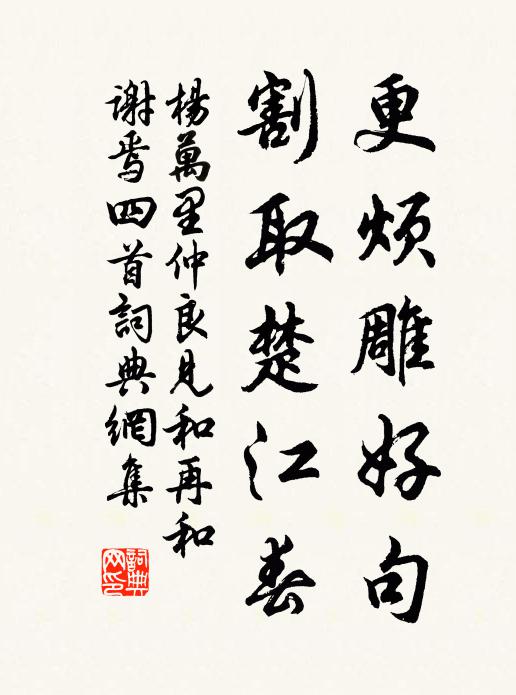 更煩雕好句
割取楚江春
楊萬里仲良見和再和
謝焉四首詞典網集
詞典
网印